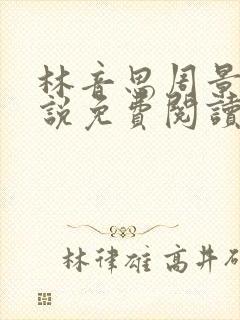 林音恩周景
說免費閱讀
林律雄 高井研